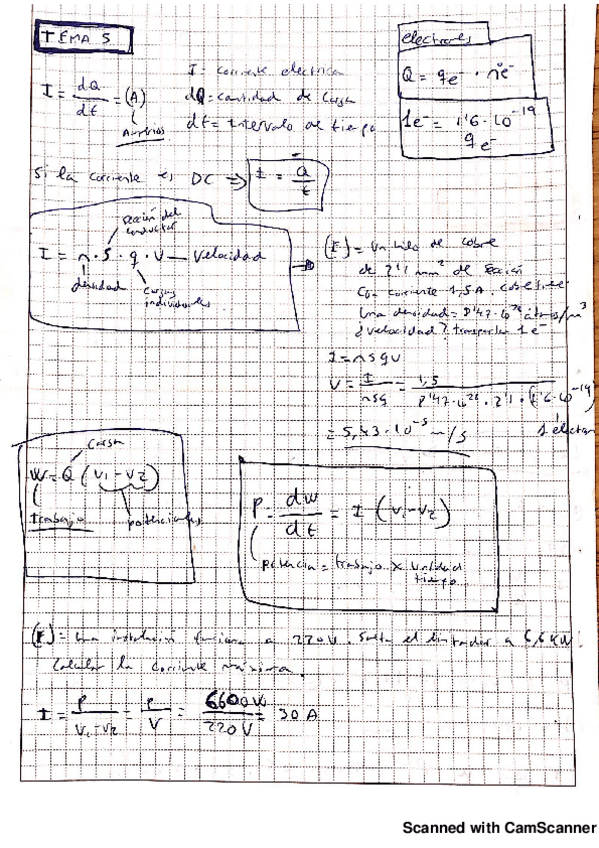 TEMA 5
electrones
I = dQ/dt = (A)
Amperios
I = corriente electrica
dQ = cantidad de carga
dt = intervalo de tiempo
Q = qe⁻ · nºe⁻
1e⁻ = 1'6·10⁻¹⁹
qe⁻
Si la corriente es DC ⇒ I = Q/t
sección del
conductor
I = n · S · q · v — velocidad
densidad
cargas
individuales
(E) = Un hilo de cobre
de 2'1 mm² de sección
con corriente 1,5A.
una densidad = 8'47·10²⁸ átomos/m³
¿velocidad? transportan 1e⁻
I = nsqv
V = I/nsq = 1,5/8'47·10²⁸ · 2'1 · (1'6·10⁻¹⁹)
1 electrón
= 5,43·10⁻⁵ m/s
carga
W = Q (V1-V2)
trabajo
potenciales
P = dw/dt = I (V1-V2)
potencia = trabajo x unidad
tiempo
(E) = Una instalación funciona a 220V. Salta el limitador a 6,6 KW.
Calcular la corriente máxima.
I = P/V1-V2 = P/V = 6600W/220V = 30 A
Scanned with CamScanner